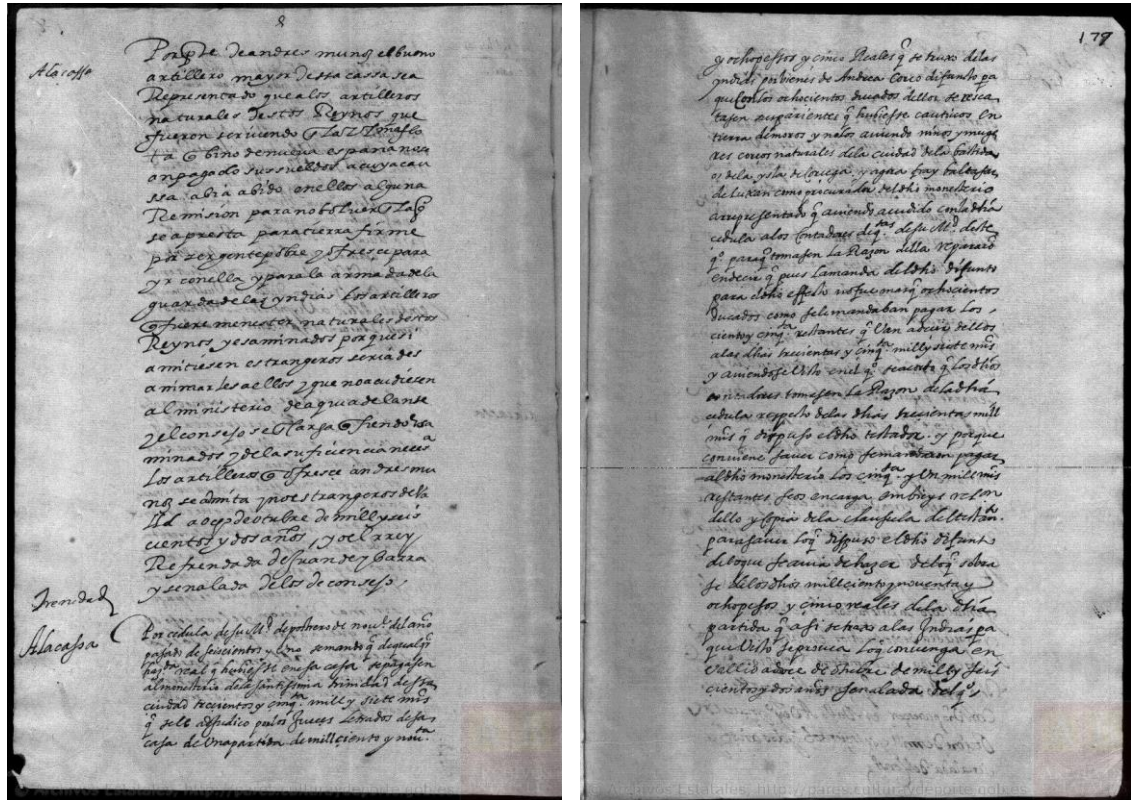 A la cassa
Por pte de andres muñoz el bueno
artillero mayor desta cassa sea
Representado que a los artilleros
naturales destos Reynos que
fueron sirviendo en la
ta q bino de nueva españa no se
an pagado sus sueldos a cuya cau
ssa abia abido en ellos alguna
Remision para no bolver en la q
se apresta para tierra firme
por ser gente pobre y q se ofresce para
yr con ella y para la armada de la
guarda de las yndias los artilleros
q fuere menester naturales destos
Reynos y esaminados porque si
amitiesen estrangeros seria des
animarles a ellos y que no acudiesen
al ministerio de aqui adelante
y el consejo se encarga q siendo esa
minados y de la suficiencia necesa
los artilleros q ofresce andres mu
ñoz se admita y no estrangeros de
a ocho de otubre de mill y seis
cientos y dos años, yo el rrey
Refrendada de Juan de ybarra
y señalada de los de consejo,
Trenidad
A la cassa
Por cedula de su Md de postrero de nove del año
pasado de seiscientos y uno se mando q de qualqr
hazda real q hubiesse en esa casa se pagasen
al monesterio de la santissima trinidad dessa
ciudad trecientos y cinqta mill y siete mrs
q se le adjudico por los Jueces Letrados desa
casa de una partida de mill ciento y novta
179
y ocho pessos y cinco Reales q se truxo de las
yndias por bienes de Andrea Corço difunto pa
que con los ochocientos ducados dellos se resca
tasen sus parientes q hubiesse cautivos en
tierra de moros y no los aviendo niños y muge
res corços naturales de la ciudad de la bastida
de la ysla de Corcega, y agora fray baltasar
de Lukan como procurador del dho monesterio
a rrepresentado q aviendo acudido con la dha
cedula a los Contadores de qtas de su Md deste
qo para q tomasen La Razon della repararon
en decir q pues la manda del dho difunto
para el dho effecto no fue mas q ochocientos
ducados como se le mandaban pagar los
ciento y cinqta restantes q Van a decir dellos
a las dhas trecientas y cinqta mill y siete mrs
y aviendose visto en el qo se acordo q Los dhos
contadores tomasen La Razon de la dha
cedula respeto de las dhas trecientas mill
mrs q dispuso el dho testador y porque
conviene saver como se mandaron pagar
al dho monesterio los cinqta y Un mill mrs
restantes se os encarga embieys relon
dello y copia de la clausula del testamto
para saver lo q dispuso el dho difunto
de lo que se avia de hazer de lo q sobra
se de los dhos mill ciento y noventa y
ocho pesos y cinco reales de la dha
partida q asi se trajo a las Indias pa
que Visto se provea Lo q convenga en
Vallid a doce de otubre de mill y seis
cientos y dos años señalada del qo,